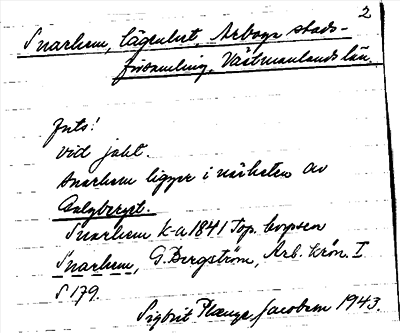 2
Snarhem, lägenhet, Arboga stads-
församling, Västmanlands län.
Juts!
vid jakt.
Snarhem ligger i närheten av
Galgberget.
Snarhem k-a 1841 Top. corpsen
Snarhem, G. Bergström, Arb. krön. I
S 179.
Sigbrit Plænge Jacobson 1943.